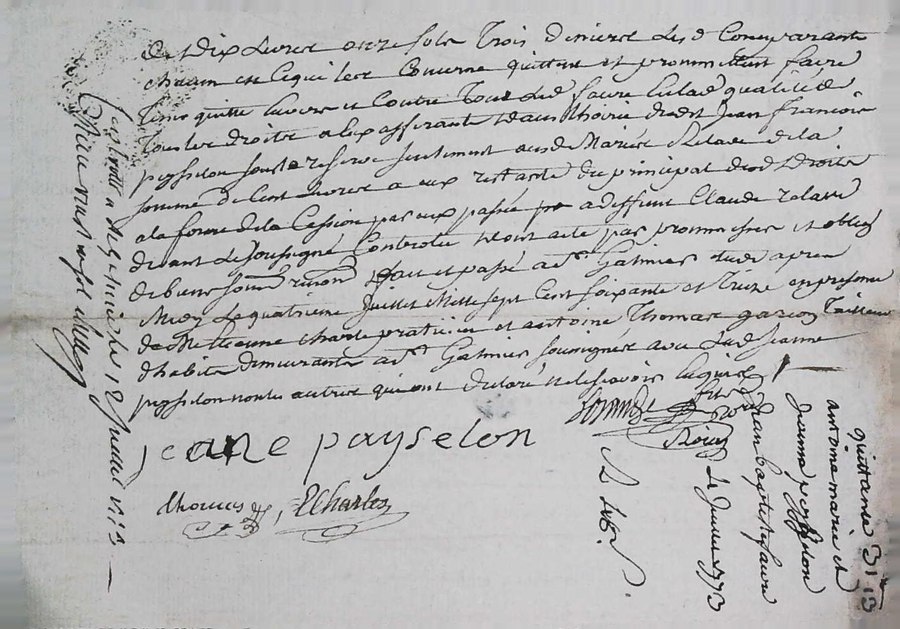 Cent dix Livres onze sols Trois deniers Lesd Comparants
chacun en ce qui les Concerne quittent et promettent faire
tenir quitte envers et Contre Tous Led faure esd qualité de
tous les droits a eux afferants dans l'hoirie dudit Jean François
peysselon sous reserve seulement aud Mariés de la
somme de Cent Livres a eux restante du principal desd Droits
a la forme de la Cession par eux passée a deffunt Claude
devant Le soussigné Controlée dont acte par promesses et oblig
de biens soum renon fait et passé a St Galmier Etude apres
Midy Le quatrieme Juillet Mille sept Cent soixante et Treize en presence
de Me Etienne Charle praticien et antoine Thomas garçon Tailleur
d'habits demeurants a St Galmier soussignés avec Lad Jeanne
peysselon non les autres qui ont declaré ne le sçavoir de ce requis
jeane payselon
thomas, E Charles
Controllé a St Galmier le 18 Juillet 1773
quittance 3# 13
antoine marie et
Jeanne peysselon
Jean baptiste faure
4 Juillet 1773